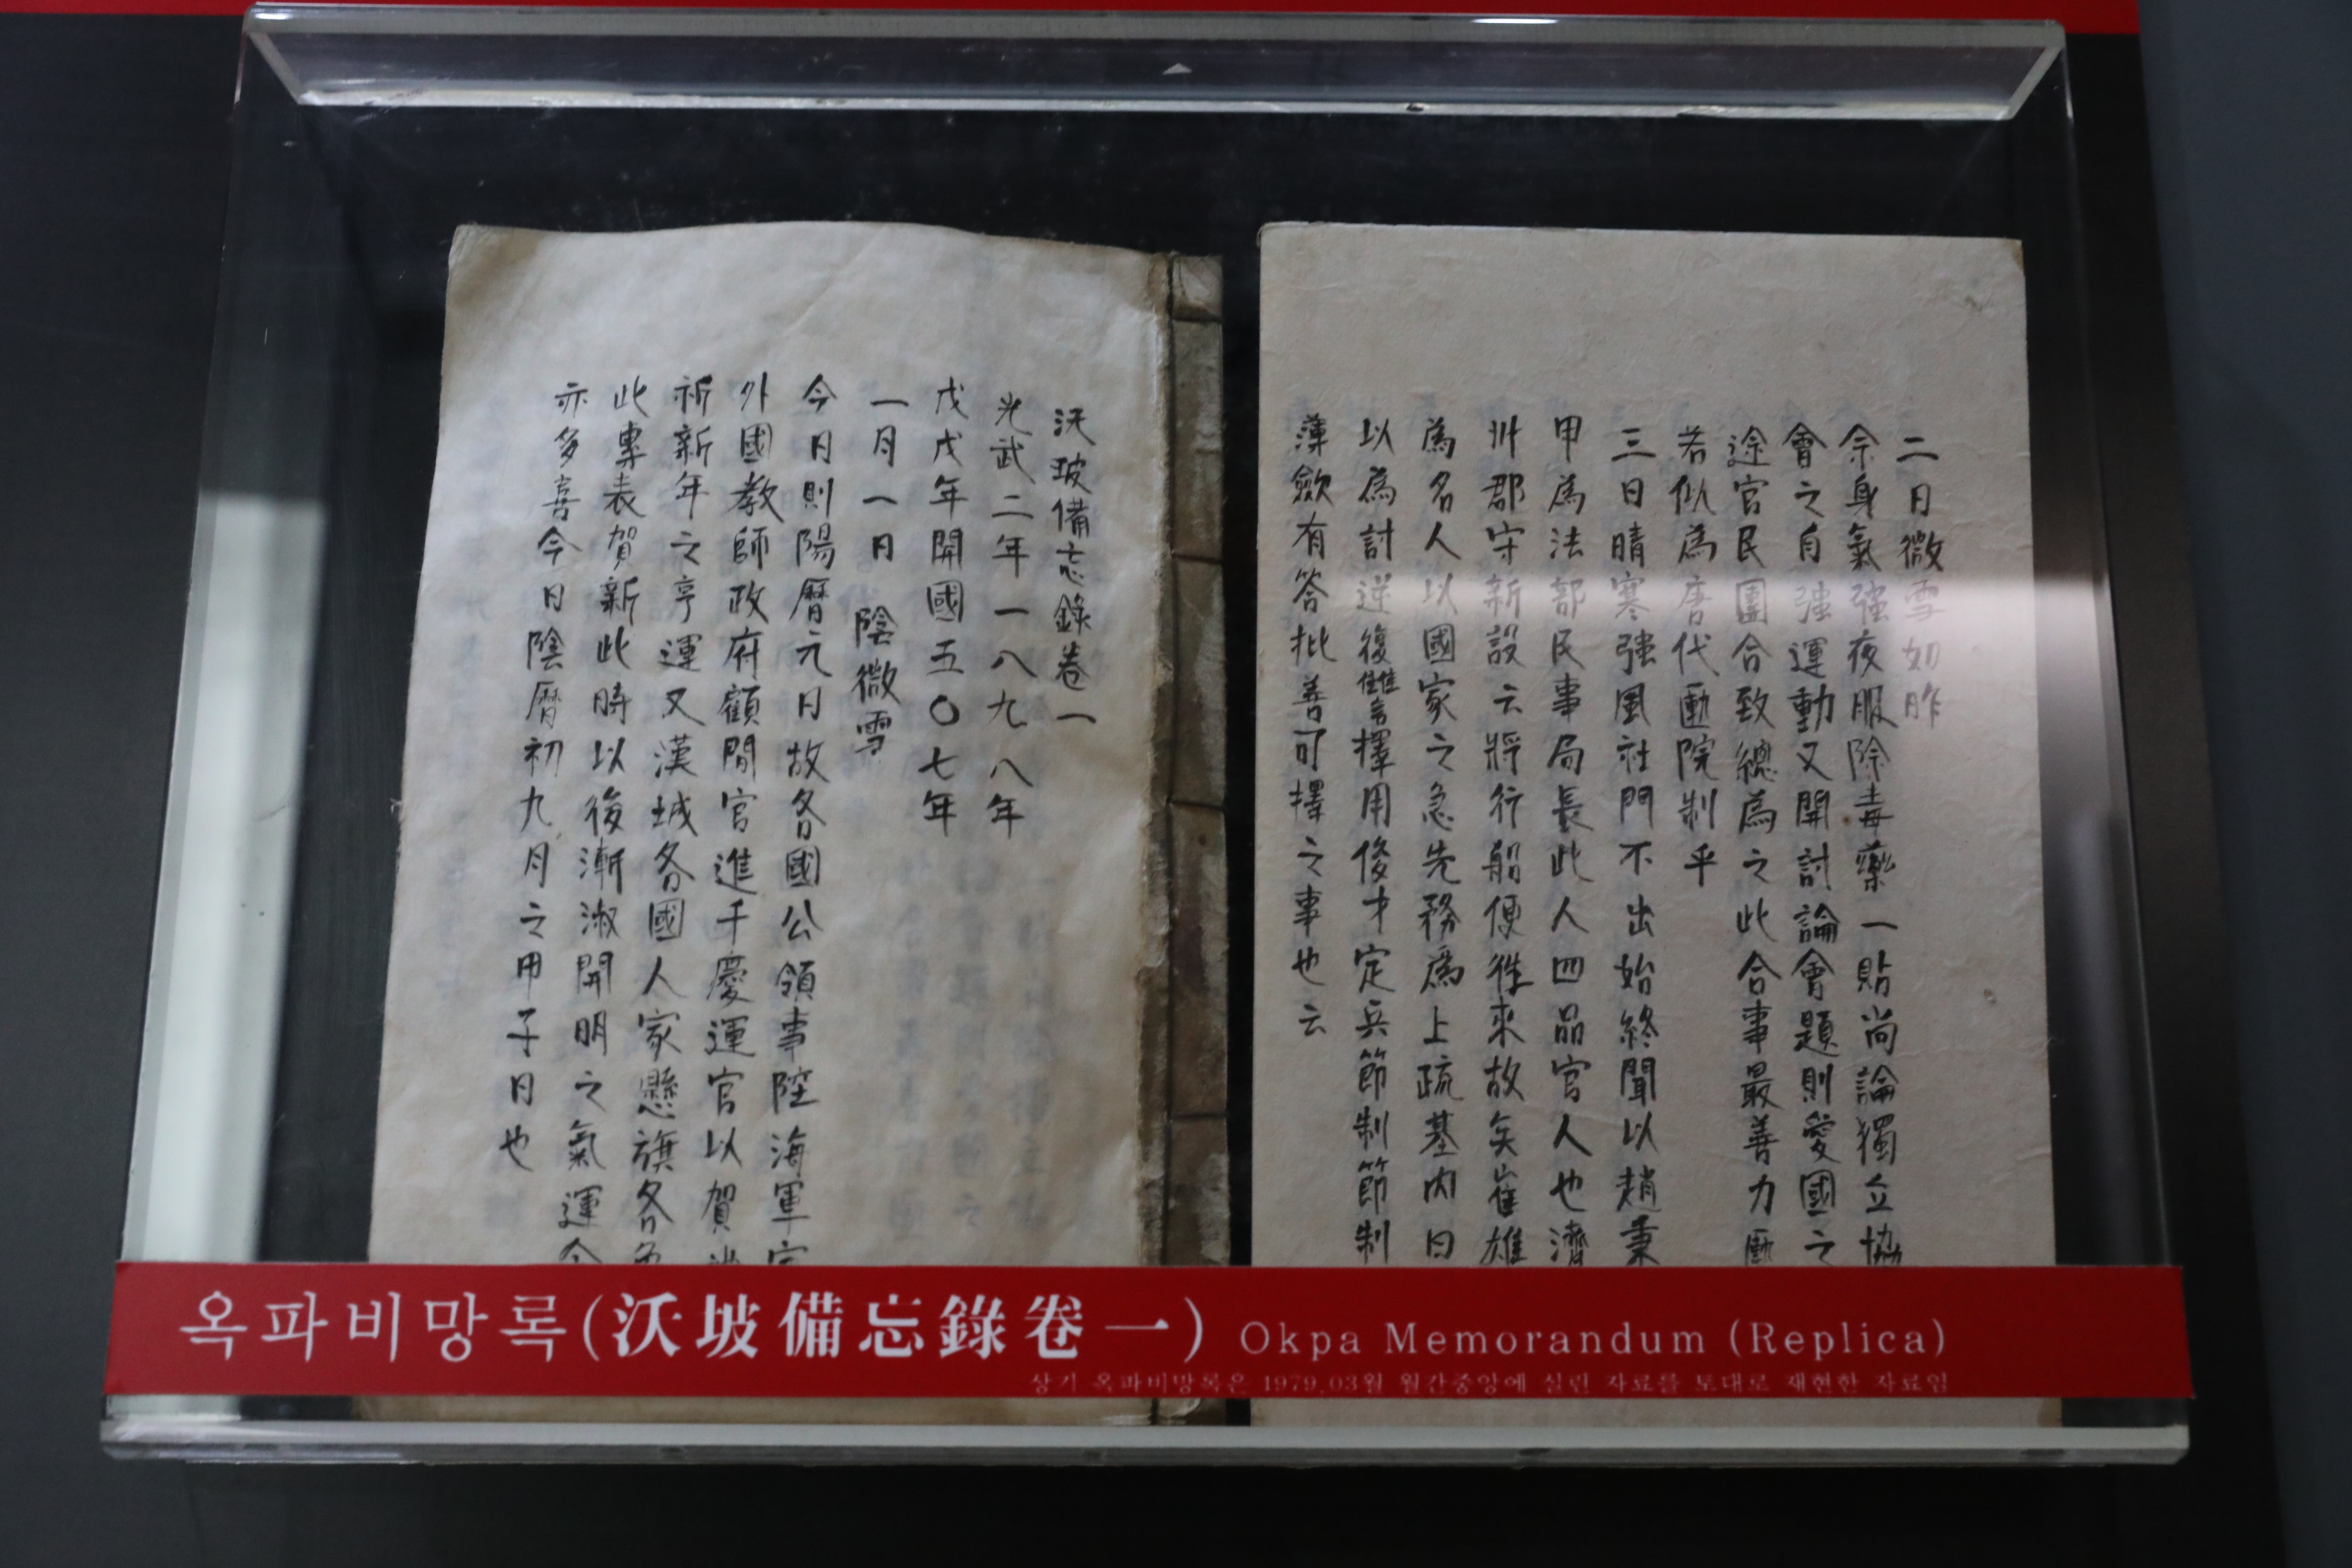 沃坡備忘錄卷一
光武二年一八九八年
戊戌年開國五〇七年
一月一日 陰微雪
今日則陽曆元日故各國公領事陸海軍官
外國教師政府顧問官進千慶運官以賀
祈新年之亨運又漢城各國人家懸旗各色
此專表賀新此時以後漸淑開明之氣運今
亦多喜今日陰曆初九月之甲子日也
二日微雪如昨
余身氣強夜服除毒藥一貼尚論獨立協
會之自強運動又開討論會題則愛國之
途官民團合致總為之此合事最善力
若似為唐代 院制乎
三日晴寒強風社門不出始終聞以趙秉
甲為法部民事局長此人四品官人也濟
州郡守新設云將行船便往來故矣崔雄
為名人以國家之急先務為上疏基內曰
以為討逆復讎擇用俊才定兵節制節制
薄斂有答批善可擇之事也云
옥파비망록(沃坡備忘錄卷一) Okpa Memorandum (Replica)
상기 옥파비망록은 1979.03월 월간중앙에 실린 자료를 토대로 재현한 자료임